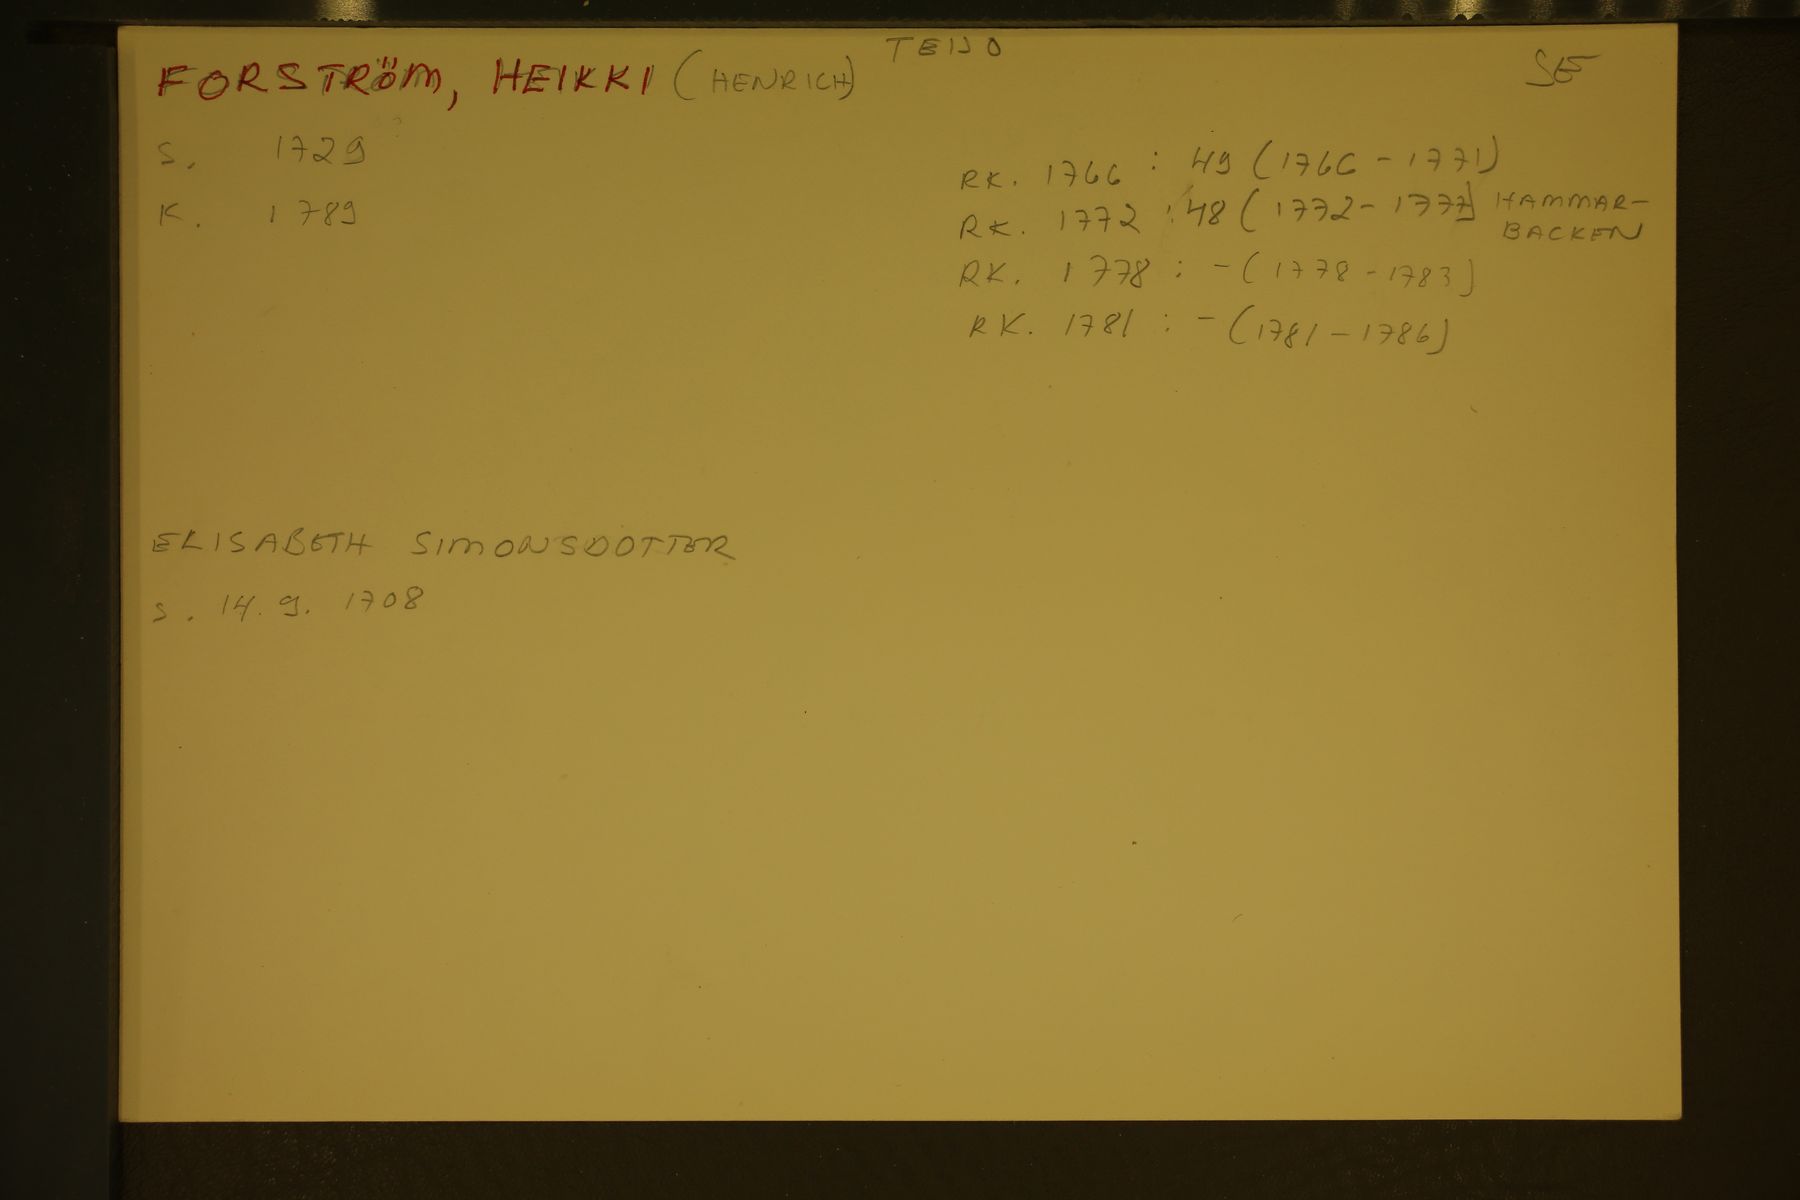 TEIJO
FORSTRÖM, HEIKKI (HENRICH)
SE
S. 1729
K. 1789
RK. 1766 : 49 (1766 - 1771)
RK. 1772 : 48 (1772 - 1777) HAMMAR-
BACKEN
RK. 1778 : - (1778 - 1783)
RK. 1781 : - (1781 - 1786)
ELISABETH SIMONSDOTTER
S. 14. 9. 1708